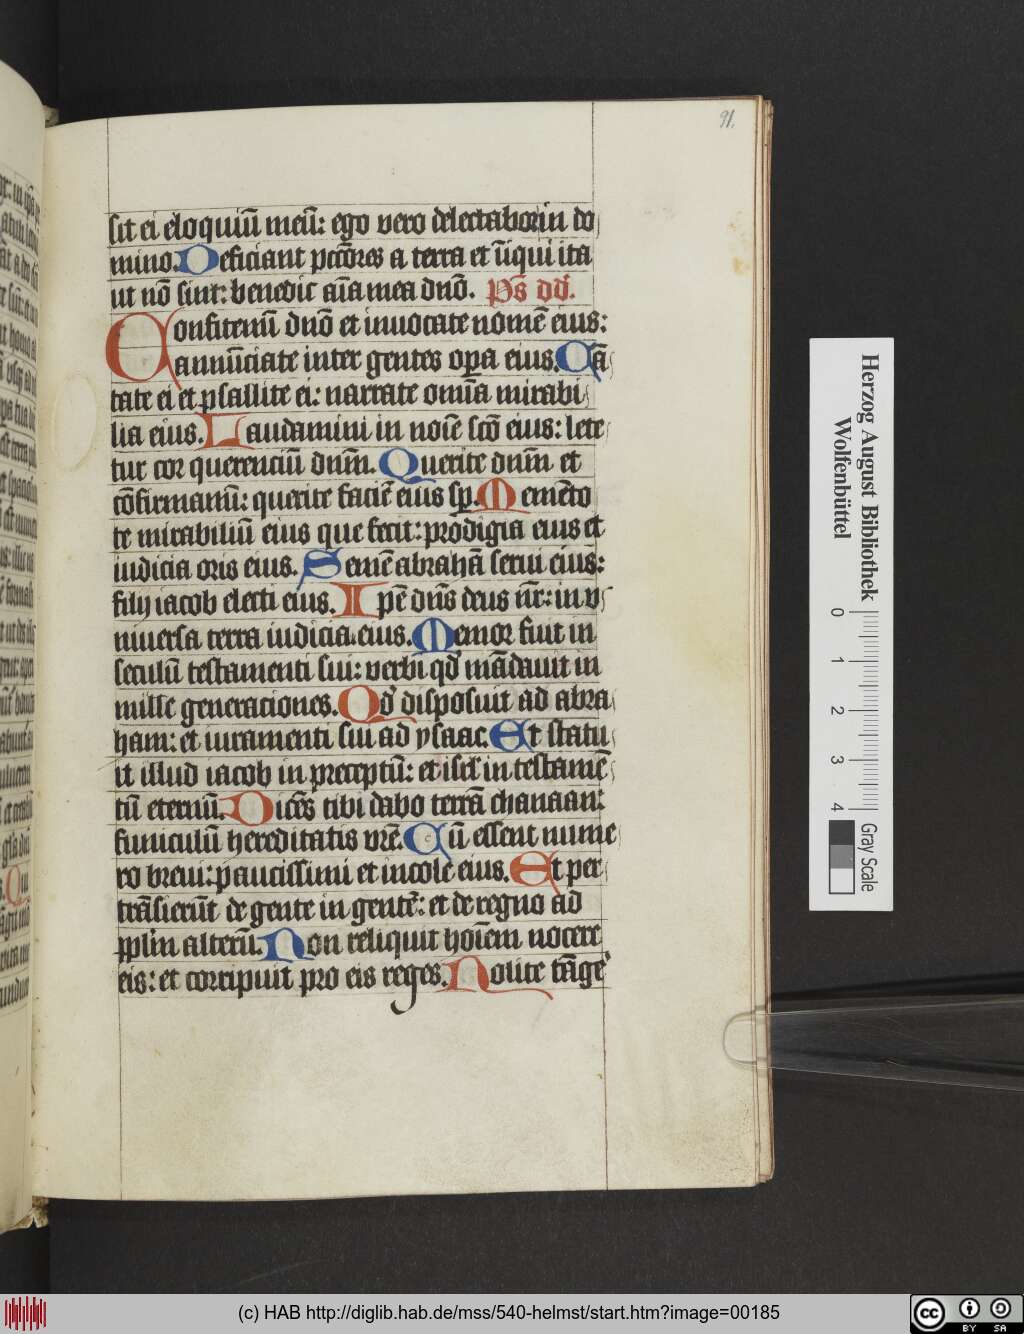 91.
sit ei eloquiū meū: ego vero delectabor in do
mino. Deficiant pctōres a terra et īiqui ita
ut nō sint: benedic aīa mea dnō. Ps̄ dd̄.
Confitemī dnō et invocate nomē eius:
annūciate inter gentes opa eius. Cā
tate ei et psallite ei: narrate omīa mirabi
lia eius. Laudamini in noīe scō eius: lete
tur cor querenciū dnm̄. Querite dnm̄ et
cōfirmamī: querite faciē eius sp. Memēto
te mirabiliū eius que fecit: prodigia eius et
iudicia oris eius. Semē abrahā servi eius:
filij iacob electi eius. Ipē dns̄ deus nr̄: in v
niuersa terra iudicia eius. Memor fuit in
seculū testamenti sui: verbi qd̄ mādavit in
mille generaciones. Qd̄ disposuit ad abra
ham: et iuramenti sui ad ysaac. Et statu
it illud iacob in preceptū: et isrl̄ in testamē
tū eternū. Dicēs tibi dabo terrā chanaan:
funiculū hereditatis vrē. Cū essent nume
ro brevi: paucissimi et incole eius. Et per
trāsierūt de gente in gentē: et de regno ad
pplm̄ alterū. Non reliquit hoīem nocere
eis: et corripuit pro eis reges. Nolite tāge
Herzog August Bibliothek
Wolfenbüttel
0 1 2 3 4
Gray Scale
(c) HAB http://diglib.hab.de/mss/540-helmst/start.htm?image=00185
cc BY SA